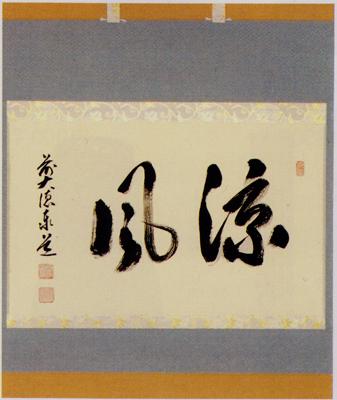 涼風
前大徳泰道